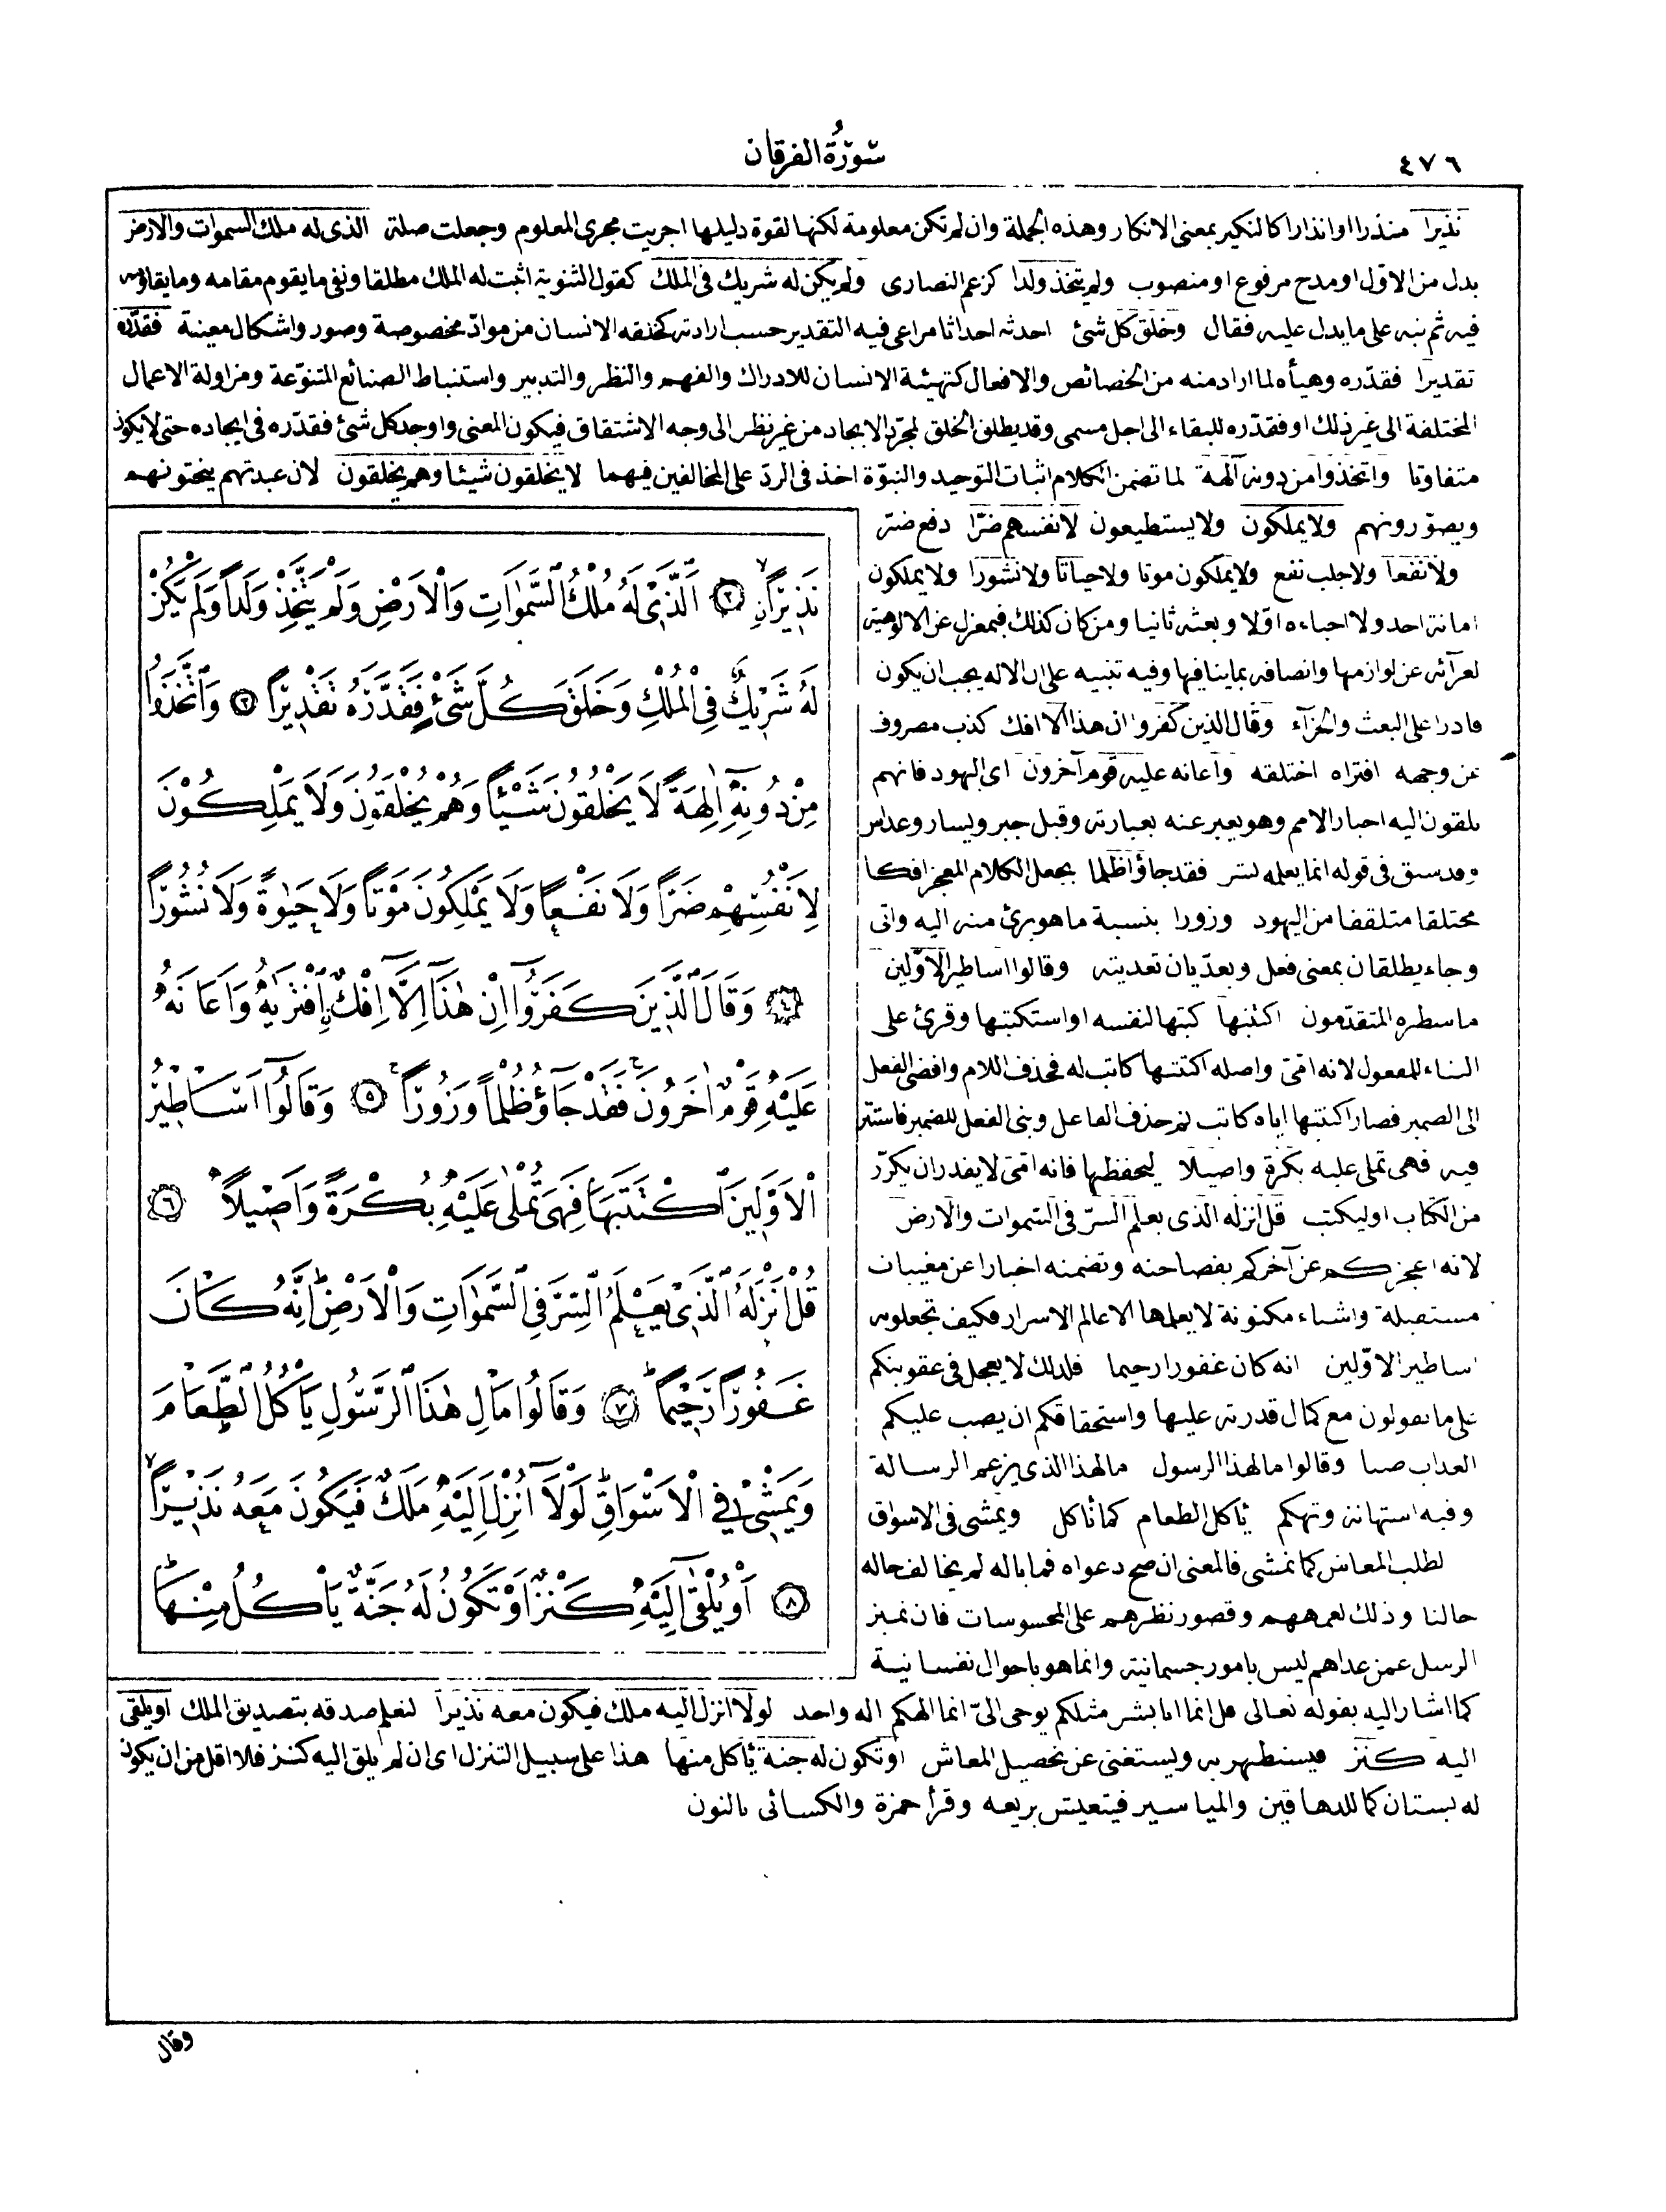 ٤٧٦
سُورَةُ الفرقان
نذيرا منذرا او انذارا كالنكير بمعنى الانكار وهذه الجملة وان لم تكن معلومة لكنها لقوة دليلها اجريت مجرى المعلوم وجعلت صلة الذى له ملك السموات والارض
بدل من الاوّل او مدح مرفوع او منصوب ولم يتخذ ولدا كزعم النصارى ولم يكن له شريك فى الملك كقول الثنوية اثبت له الملك مطلقا ونفى ما يقوم مقامه وما يقاومه
فيه ثم نبه على ما يدل عليه فقال وخلق كل شئ احدثه احداثا مراعى فيه التقدير حسب ارادته كخلقه الانسان من موادّ مخصوصة وصور واشكال معينة فقدّره
تقديرا فقدّره وهيأه لما اراد منه من الخصائص والافعال كتهيئة الانسان للادراك والفهم والنظر والتدبير واستنباط الصنائع المتنوّعة ومزاولة الاعمال
المختلفة الى غير ذلك او فقدّره للبقاء الى اجل مسمى وقد يطلق الخلق لمجرّد الايجاد من غير نظر الى وجه الاشتقاق فيكون المعنى واوجد كل شئ فقدّره فى ايجاده حتى لا يكون
متفاوتا واتخذوا من دونه آلهة لما تضمن الكلام اثبات التوحيد والنبوّة اخذ فى الردّ على المخالفين فيهما لا يخلقون شيئا وهم يخلقون لان عبدتهم ينحتونهم
ويصوّرونهم ولا يملكون ولا يستطيعون لانفسهم ضرّا دفع ضرّ
ولا نفعا ولا جلب نفع ولا يملكون موتا ولا حياتا ولا نشورا ولا يملكون
اماتة احد ولا احياءه اوّلا وبعثه ثانيا ومن كان كذلك فبمعزل عن الالوهية
لعرآئه عن لوازمها واتصافه بما ينافيها وفيه تنبيه على ان الاله يجب ان يكون
قادرا على البعث والجزآء وقال الذين كفروا ان هذا الا افك كذب مصروف
عن وجهه افتراه اختلقه واعانه عليه قوم آخرون اى اليهود فانهم
يلقون اليه اخبار الامم وهو يعبر عنه بعبارته وقيل جبر ويسار وعداس
وقد سبق فى قوله انما يعلمه بشر فقد جاؤا ظلما بجعل الكلام المعجز افكا
مختلقا متلقفا من اليهود وزورا بنسبة ما هو برئ منه اليه واتى
وجاء يطلقان بمعنى فعل ويعدّيان تعديته وقالوا اساطير الاوّلين
ما سطره المتقدّمون اكتتبها كتبها لنفسه او استكتبها وقرئ على
البناء للمفعول لانه امّى واصله اكتتبها كاتب له فحذف اللام وافضى الفعل
الى الضمير فصار اكتتبها اياه كاتب ثم حذف الفاعل وبنى الفعل للضمير فاستتر
فيه فهى تملى عليه بكرة واصيلا ليحفظها فانه امّى لا يقدر ان يكرّر
من الكتاب او ليكتب قل انزله الذى يعلم السرّ فى السّموات والارض
لانه اعجزكم عن آخركم بفصاحته وتضمنه اخبارا عن مغيبات
مستقبلة واشياء مكنونة لا يعلمها الا عالم الاسرار فكيف تجعلونه
اساطير الاوّلين انه كان غفورا رحيما فلذلك لا يعجل فى عقوبتكم
على ما تقولون مع كمال قدرته عليها واستحقاقكم ان يصب عليكم
العذاب صبا وقالوا ما لهذا الرسول ما لهذا الذى يزعم الرسالة
وفيه استهانة وتهكم يأكل الطعام كما نأكل ويمشى فى الاسواق
لطلب المعاش كما نمشى فالمعنى ان صح دعواه فما باله لم يخالف حاله
حالنا وذلك لعمههم وقصور نظرهم على المحسوسات فان تميز
الرسل عمن عداهم ليس بامور جسمانية وانما هو باحوال نفسانية
كما اشار اليه بقوله تعالى قل انما انا بشر مثلكم يوحى الىّ انما الهكم اله واحد لولا انزل اليه ملك فيكون معه نذيرا لنعلم صدقه بتصديق الملك او يلقى
اليه كنز فيستظهر به ويستغنى عن تحصيل المعاش او تكون له جنة يأكل منها هذا على سبيل التنزل اى ان لم يلق اليه كنز فلا اقل من ان يكون
له بستان كما للدهاقين والمياسير فيتعيش بريعه وقرأ حمزة والكسائى بالنون
نَذِيرًاۙ ٢ اَلَّذٖى لَهُ مُلْكُ السَّمٰوَاتِ وَالْاَرْضِ وَلَمْ يَتَّخِذْ وَلَدًا وَلَمْ يَكُنْ
لَهُ شَرٖيكٌ فِى الْمُلْكِ وَخَلَقَ كُلَّ شَىْءٍ فَقَدَّرَهُ تَقْدٖيرًا ٣ وَاتَّخَذُوا
مِنْ دُونِهٖٓ اٰلِهَةً لَا يَخْلُقُونَ شَيْـًٔا وَهُمْ يُخْلَقُونَ وَلَا يَمْلِكُونَ
لِاَنْفُسِهِمْ ضَرًّا وَلَا نَفْعًا وَلَا يَمْلِكُونَ مَوْتًا وَلَا حَيٰوةً وَلَا نُشُورًا
٤ وَقَالَ الَّذٖينَ كَفَرُٓوا اِنْ هٰذَٓا اِلَّٓا اِفْكٌ افْتَرٰيهُ وَاَعَانَهُ
عَلَيْهِ قَوْمٌ اٰخَرُونَۚ فَقَدْ جَٓاؤُ ظُلْمًا وَزُورًاۚ ٥ وَقَالُٓوا اَسَاطٖيرُ
الْاَوَّلٖينَ اكْتَتَبَهَا فَهِىَ تُمْلٰى عَلَيْهِ بُكْرَةً وَاَصٖيلًا ٦
قُلْ اَنْزَلَهُ الَّذٖى يَعْلَمُ السِّرَّ فِى السَّمٰوَاتِ وَالْاَرْضِؕ اِنَّهُ كَانَ
غَفُورًا رَحٖيمًاؕ ٧ وَقَالُوا مَالِ هٰذَا الرَّسُولِ يَاْكُلُ الطَّعَامَ
وَيَمْشٖى فِى الْاَسْوَاقِؕ لَوْلَٓا اُنْزِلَ اِلَيْهِ مَلَكٌ فَيَكُونَ مَعَهُ نَذٖيرًاۙ
٨ اَوْ يُلْقٰٓى اِلَيْهِ كَنْزٌ اَوْ تَكُونُ لَهُ جَنَّةٌ يَاْكُلُ مِنْهَاؕ
وقال